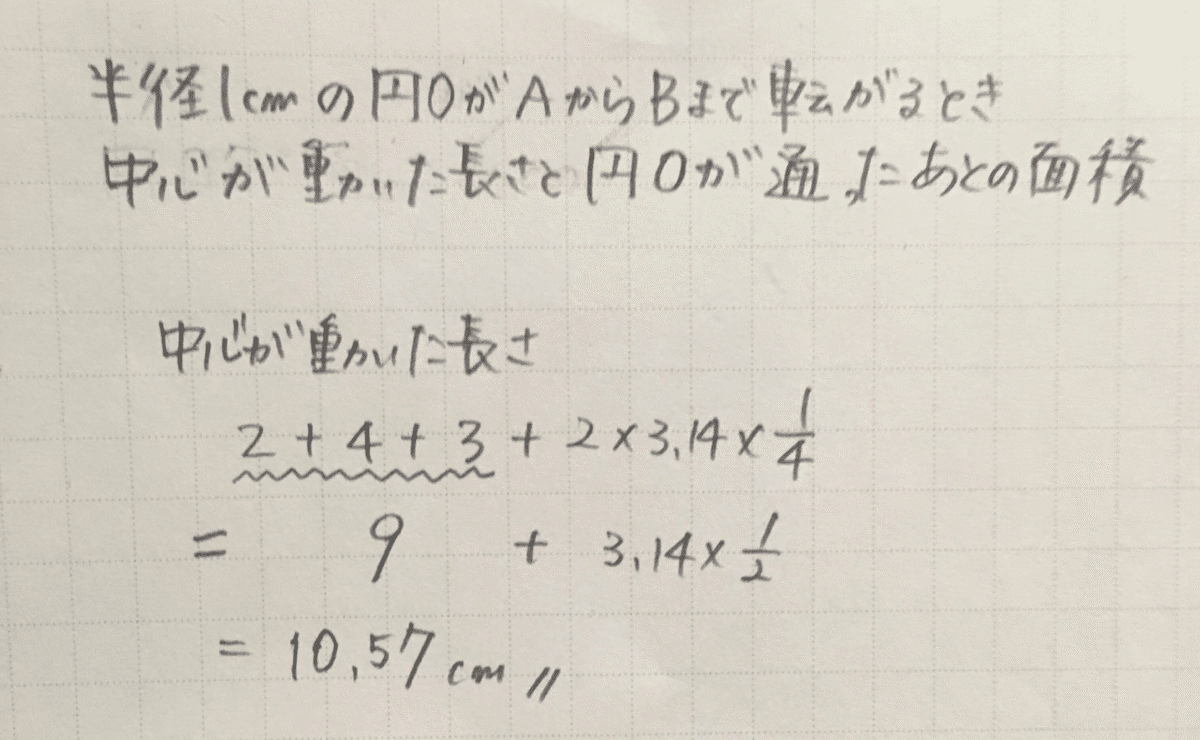 半径1cmの円OがAからBまで転がるとき
中心が動いた長さと円Oが通ったあとの面積
中心が動いた長さ
2 + 4 + 3 + 2 × 3.14 × 1/4
= 9 + 3.14 × 1/2
= 10.57 cm〃